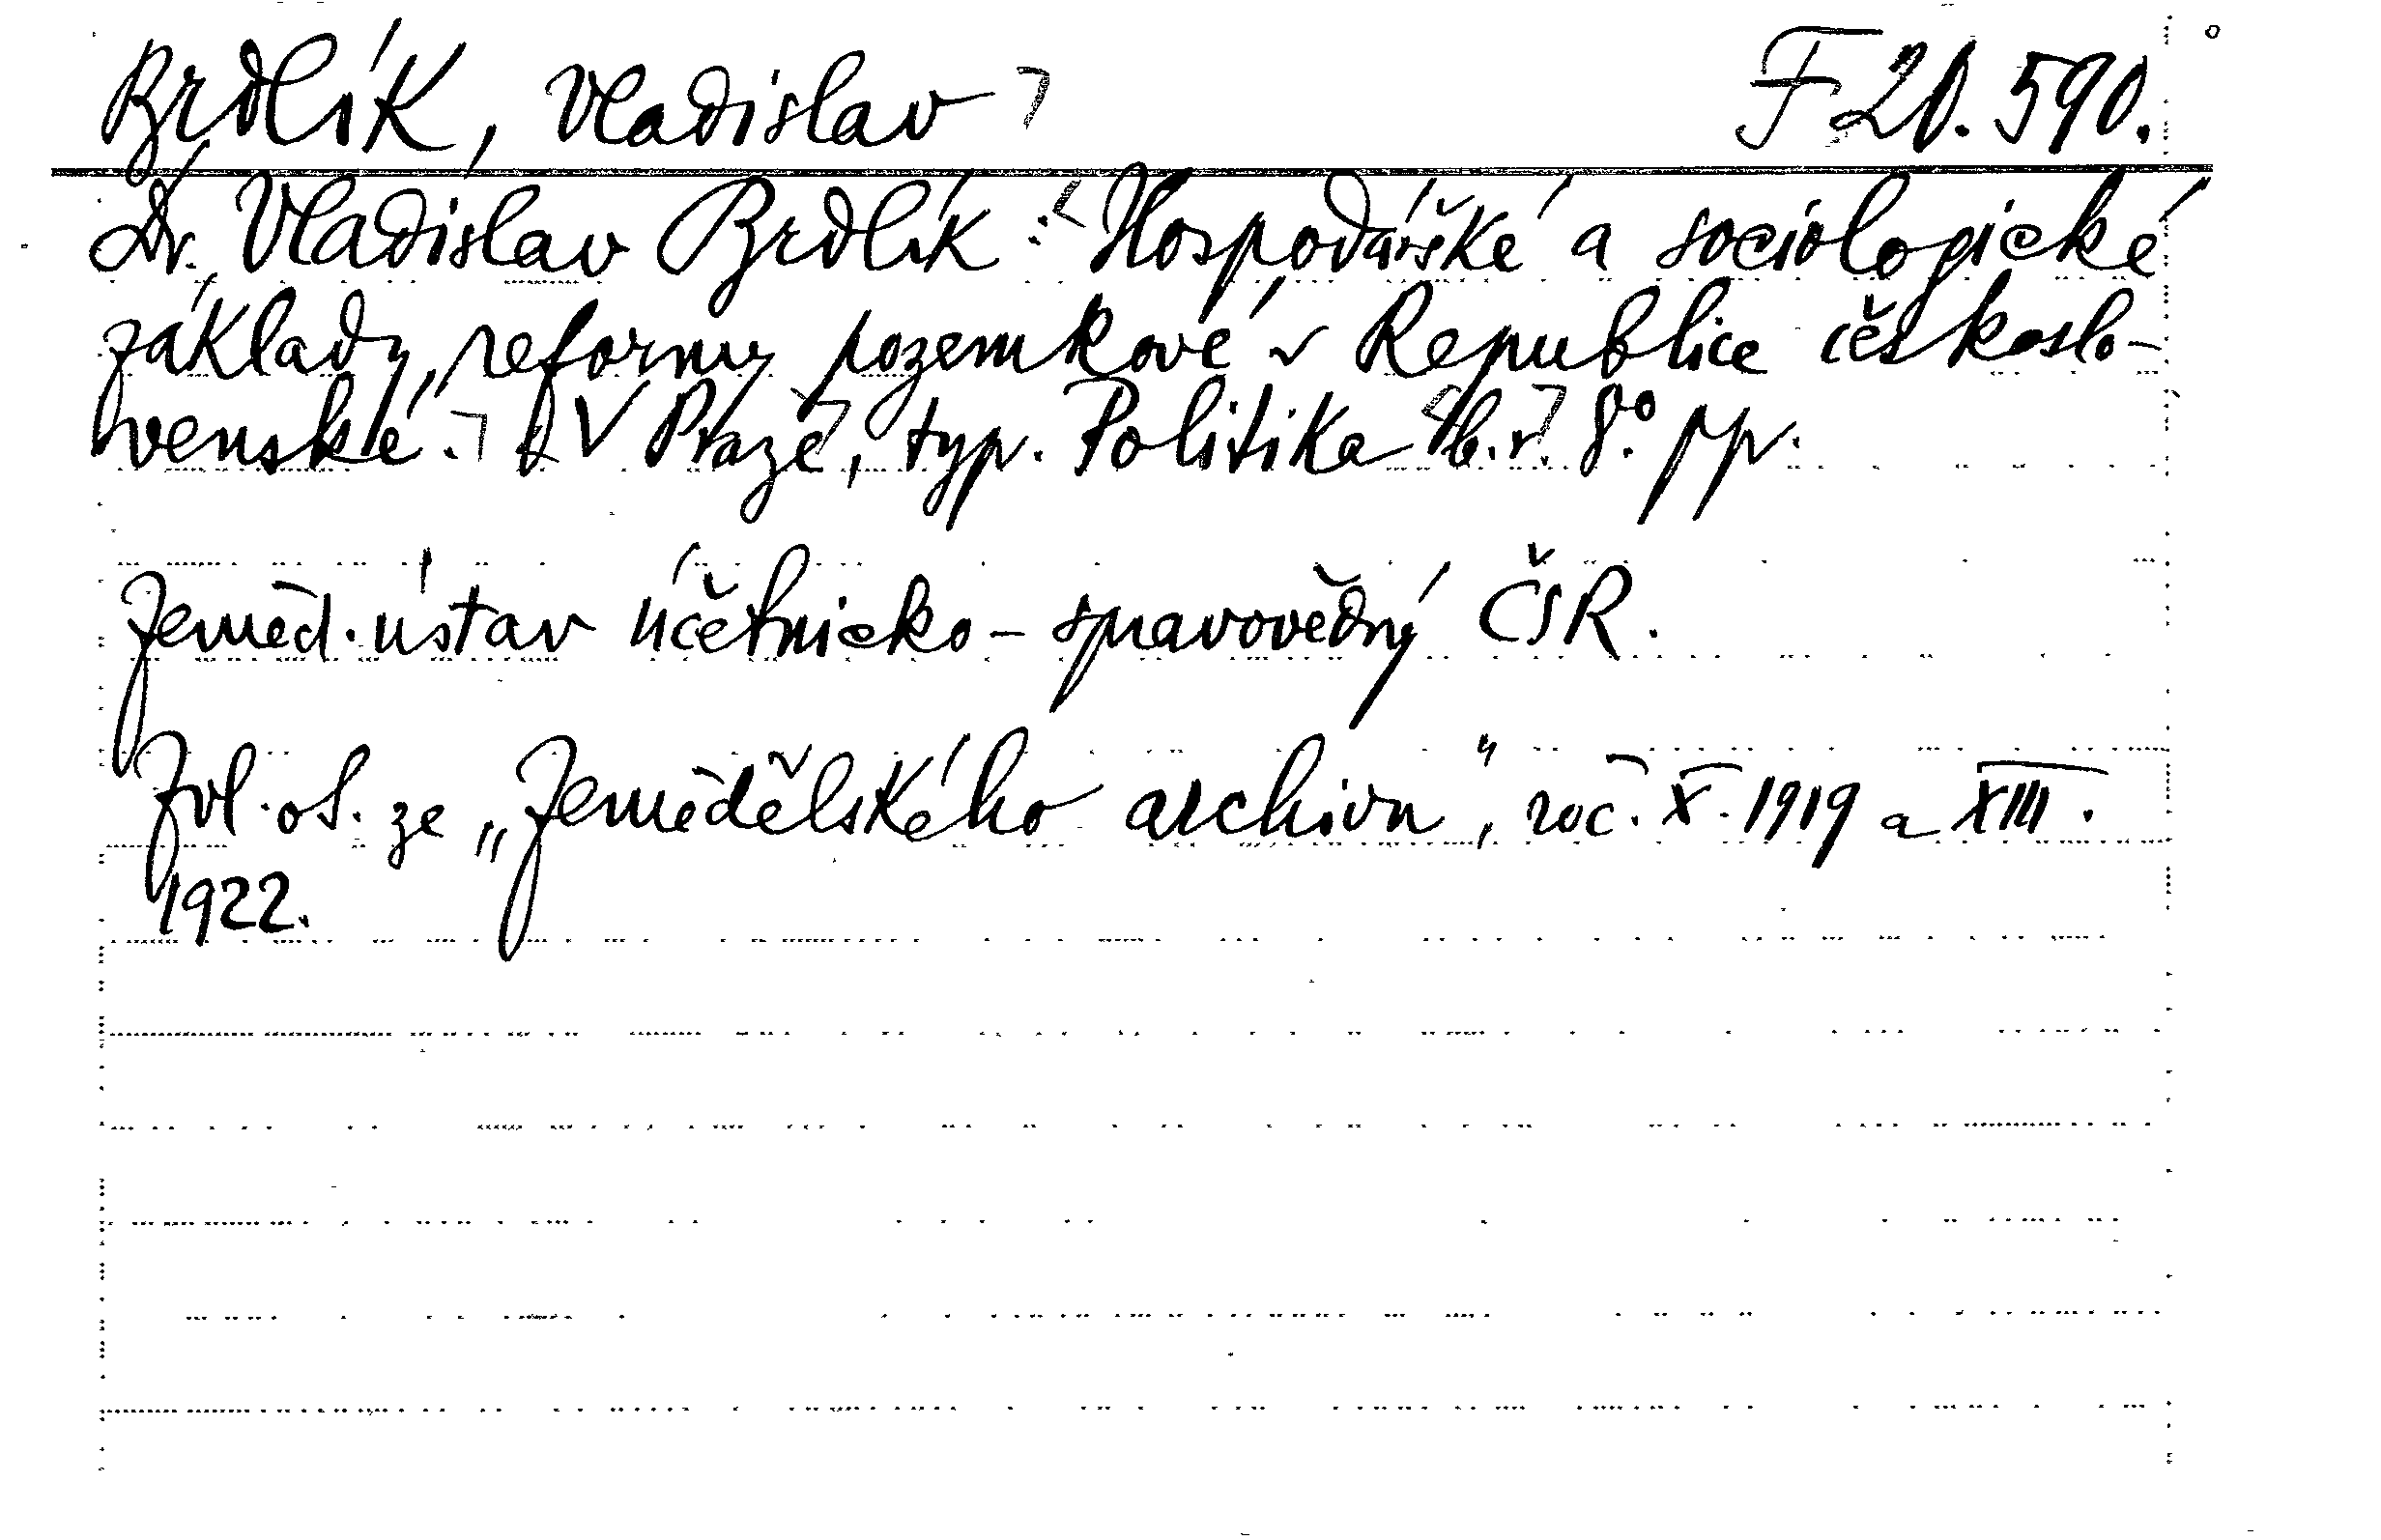 Brdlík, Vladislav ⌉ F 20.590.
Dr. Vladislav Brdlík : Hospodářské a sociologické
základy reformy pozemkové v Republice českoslo-
venské. V Praze, typ. Politika b.r. 8°. pp.
Zeměd. ústav účetnicko-spravovědný ČSR.
Zvl. ot. ze „Zemědělského archivu", roč. X. 1919 a XIII.
1922.